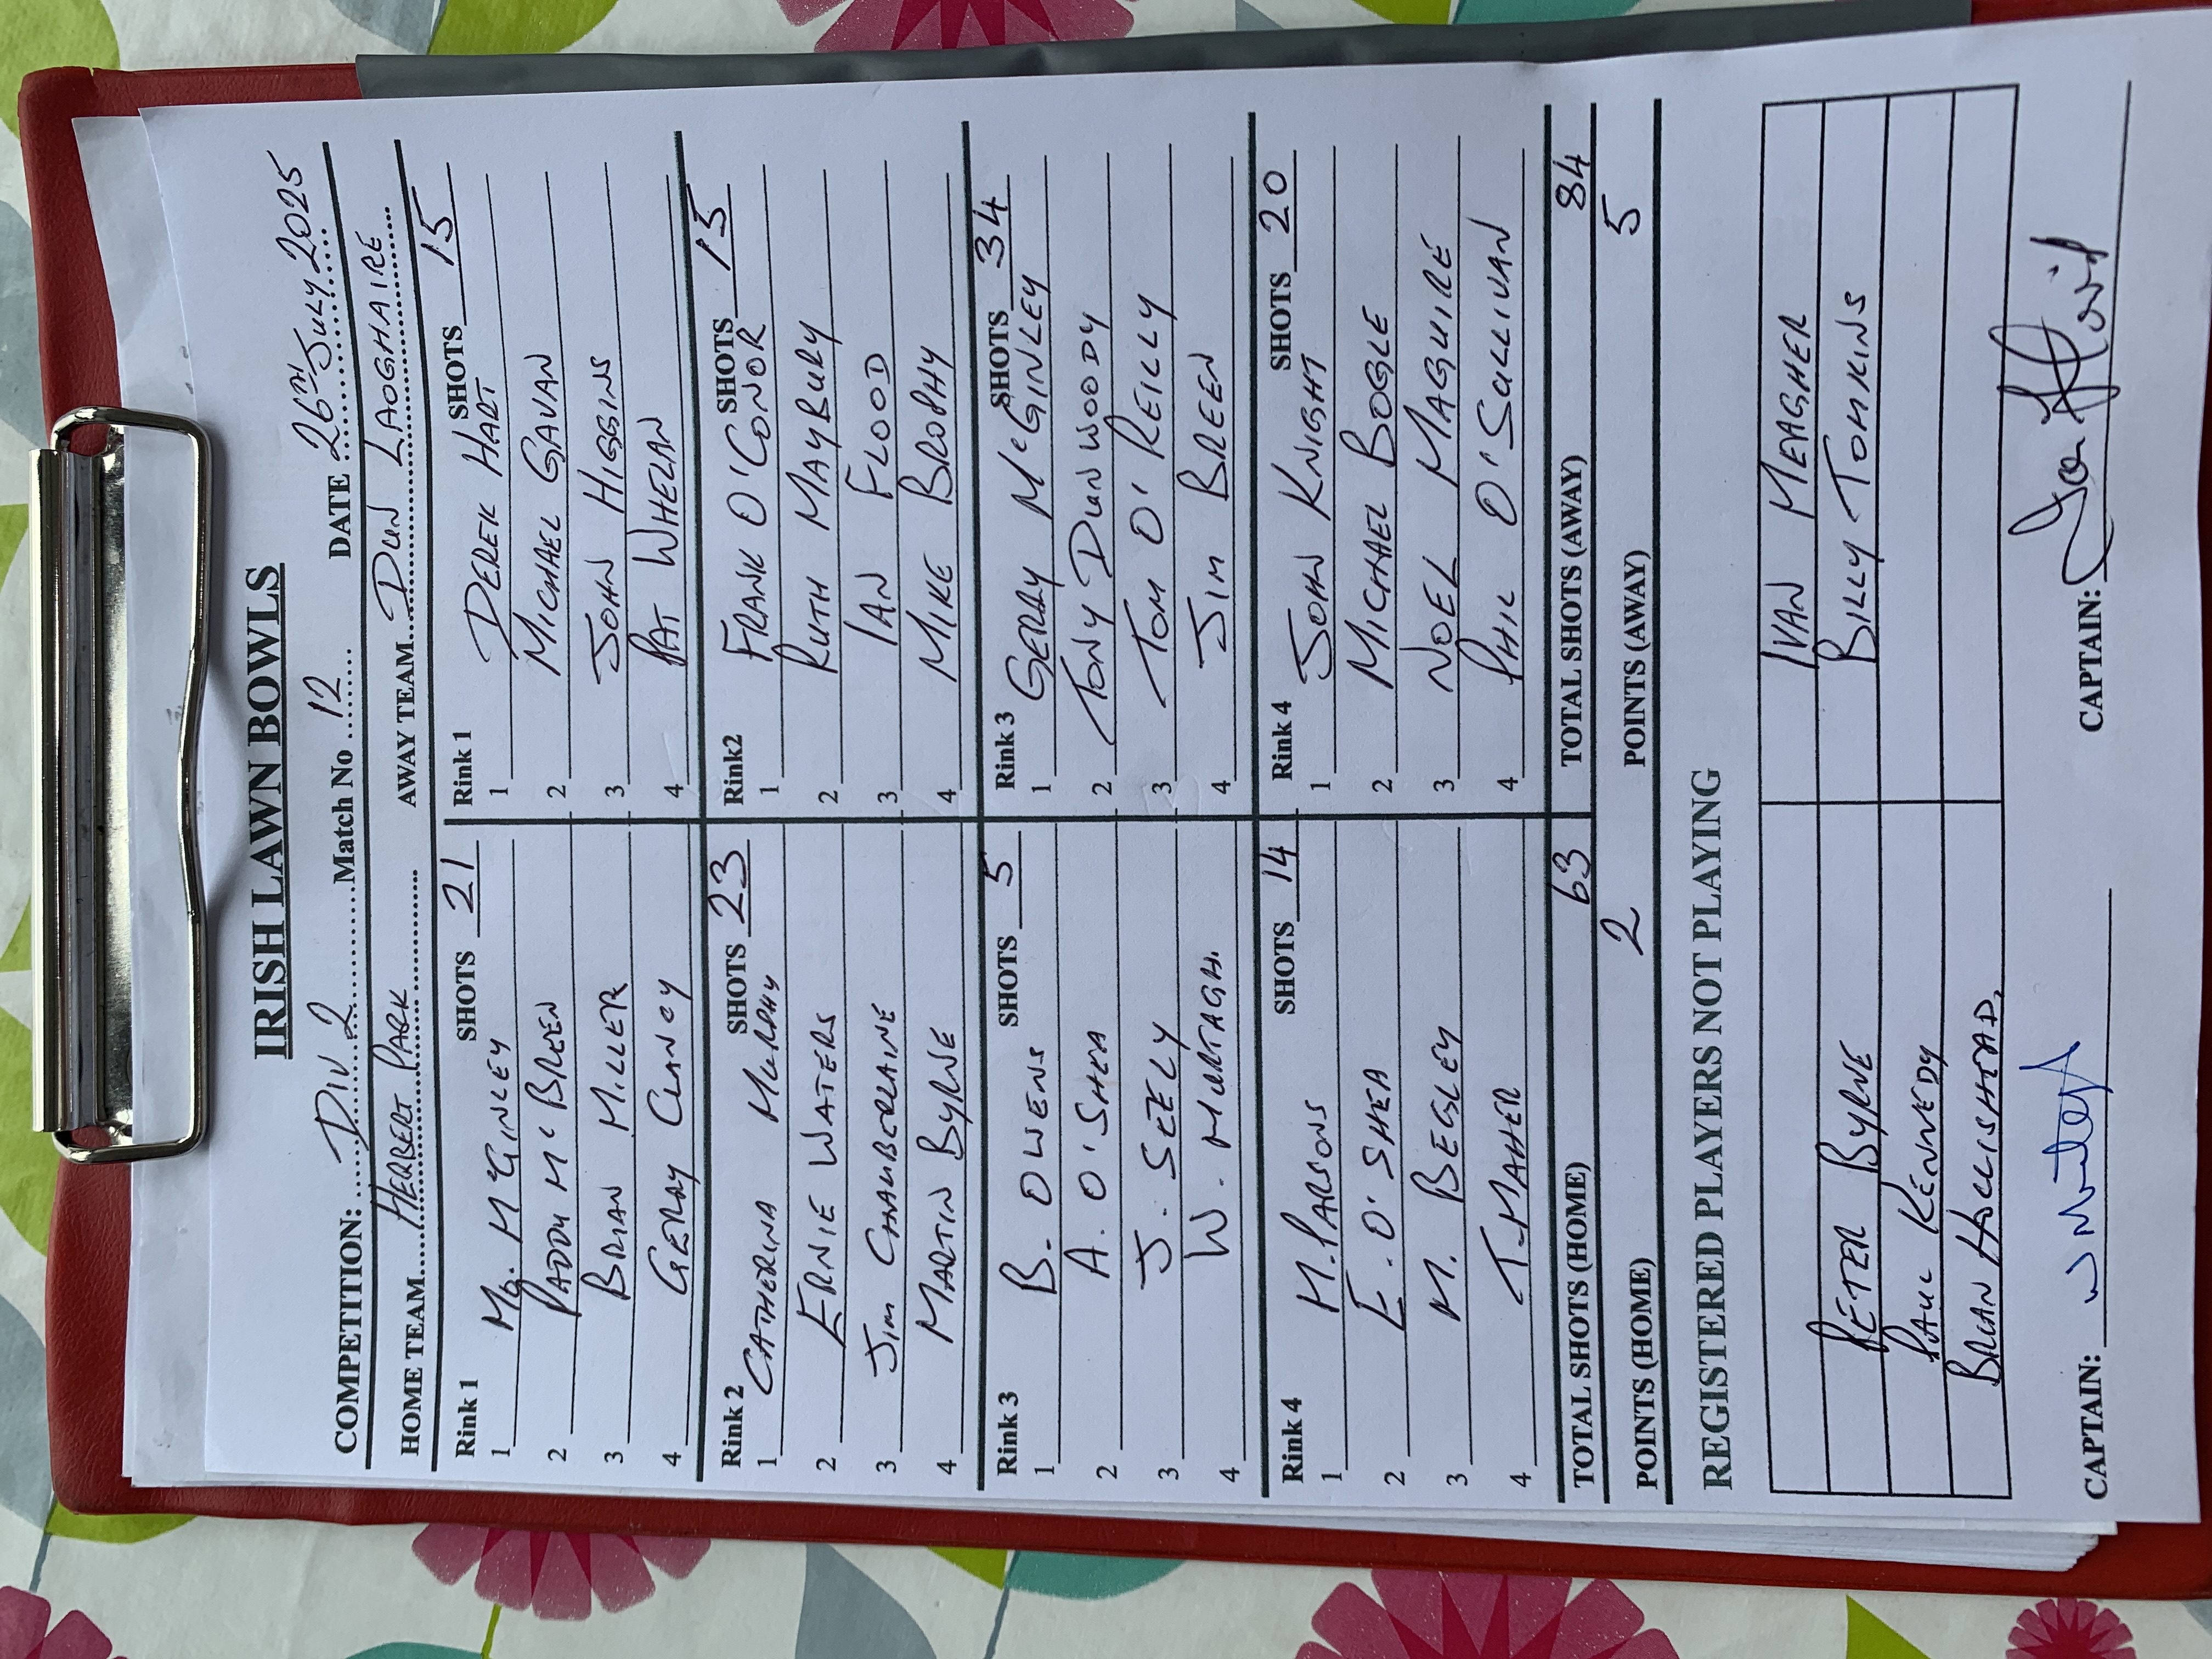 IRISH LAWN BOWLS
COMPETITION: DIV 2 Match No 12 DATE 26TH JULY 2025
HOME TEAM HERBERT PARK AWAY TEAM DUN LAOGHAIRE
Rink 1 SHOTS 21 Rink 1 SHOTS 15
1 McGINLEY 1 DEREK HART
2 PADDY McBREEN 2 MICHAEL GAVAN
3 BRIAN MILLER 3 JOHN HIGGINS
4 GERRY CLANCY 4 PAT WHELAN
Rink 2 SHOTS 23 Rink2 SHOTS 15
1 CATHERINA MURPHY 1 FRANK O'CONOR
2 ERNIE WATERS 2 RUTH MAYBURY
3 JIM CHAMBERLAINE 3 IAN FLOOD
4 MARTIN BYRNE 4 MIKE BROPHY
Rink 3 SHOTS 5 Rink 3 SHOTS 34
1 B. OWENS 1 GERRY McGINLEY
2 A. O'SHEA 2 TONY DUNWOODY
3 J. SEELY 3 TOM O'REILLY
4 W. MURTAGH. 4 JIM BREEN
Rink 4 SHOTS 14 Rink 4 SHOTS 20
1 M. PARSONS 1 JOHN KNIGHT
2 E. O'SHEA 2 MICHAEL BOGLE
3 M. BEGLEY 3 NOEL MAGUIRE
4 T. MAHER 4 PHIL O'SULLIVAN
TOTAL SHOTS (HOME) 63 TOTAL SHOTS (AWAY) 84
POINTS (HOME) 2 POINTS (AWAY) 5
REGISTERED PLAYERS NOT PLAYING
IVAN MEAGHER
PETER BYRNE BILLY TOMKINS
PAUL KENNEDY
BRIAN HOLLISHEAD.
CAPTAIN: CAPTAIN: